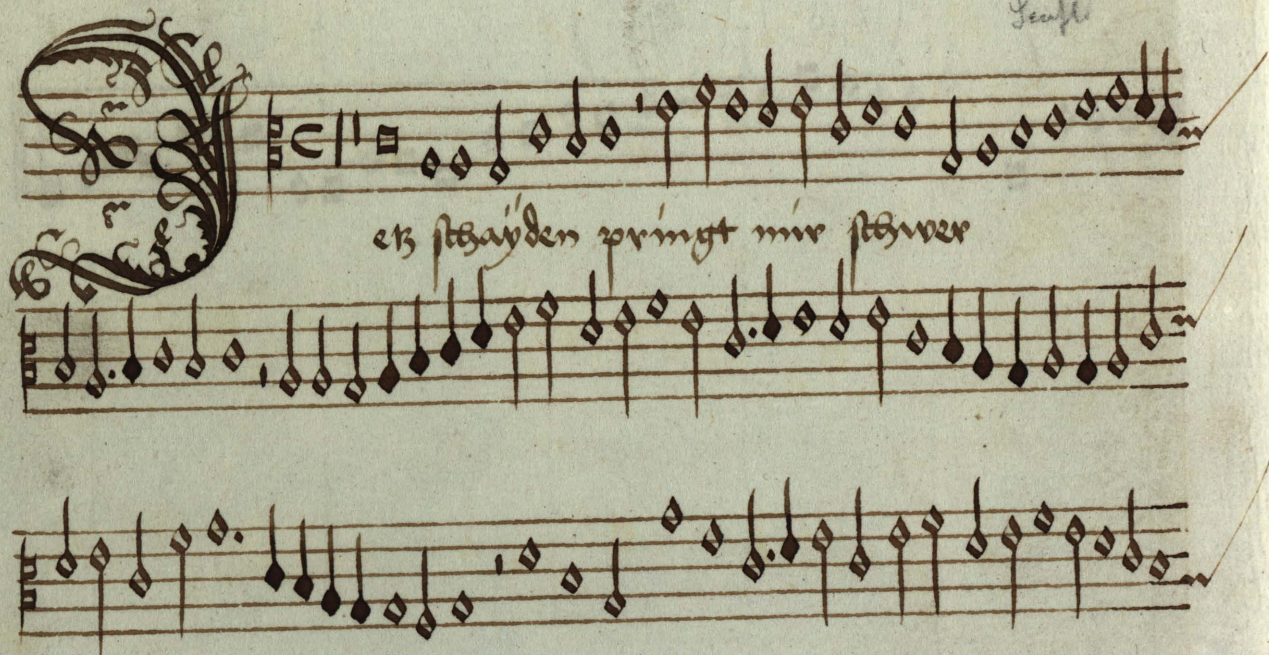 Senfl
Jetz schayden pringt mir schwer